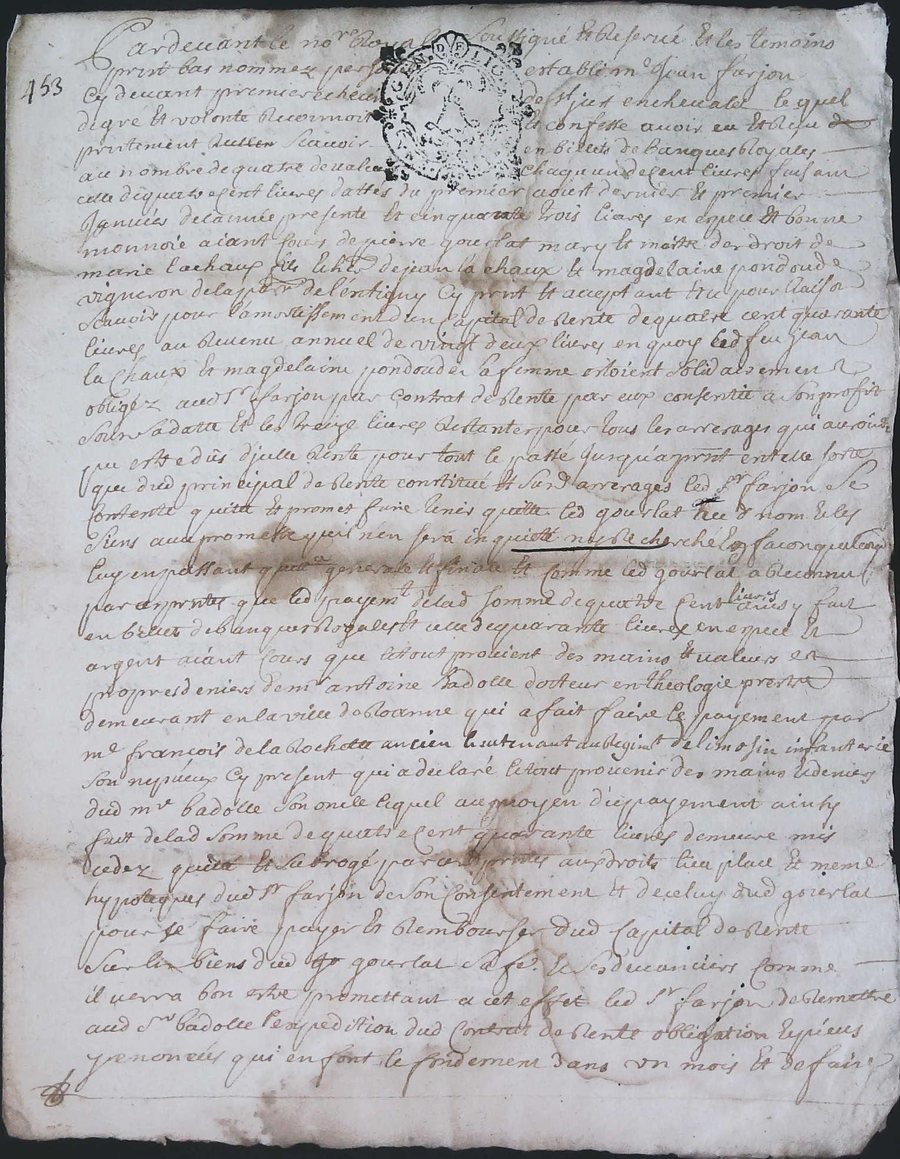 Pardevant le no.re Royal Soussigné et Reservé et les temoins
453
GEN. DE LION
prnt bas nommez estably m.e Jean farjon
Cy devant premier echevin de st just en chevalet lequel
de gré et volonté Reconnoit et confesse avoir eu et Receu
printement Scavoir en billets de Banques Royales
au nombre de quatre de valeur chaqu'un de cent livres faisant
celle de quatre cent livres dattés du premier aoust dernier et premier
Janvier de lannée presente et cinquante trois livres en espece et bonne
monnoie aiant cours de pierre gourlat mary et maitre des droit de
marie lachaux fils et her. de jean la chaux et magdelaine pondoude
vigneron de la parr. de lentigny Cy prnt et acceptant
Scavoir pour lamortissement d'un Capital de Rente de quatre cent quarante
livres au Revenu annuel de vingt deux livres en quoy led feu jean
la Chaux et magdelaine pondoude sa femme estoient solidairement
obligéz aud Sr farjon par contrat de Rente par eux consentie a son profit
Sous sa datte et les treize livres Restantes pour tous les arrerages qui auroient
pu estre dûs d'jcelle Rente pour tout le passé jusqu'a prnt en telle sorte
que dud principal de Rente constitué et Sur. arrerages led Sr farjon se
Contente quitte et promet faire tenir quitte led gourlat aud nom et les
Siens avec promesse qu'il n'en sera inquietté ny Recherché en facon quelconque
luy en passant quitt.ce generale et finale et comme led gourlat a Reconnu
par ces prntes que led payem.t de lad somme de quatre Cent livres ainsy fait
en billets de banques Royales et celle de quarante livres en espece et
argent aiant Cours que le tout provient des mains et valeurs et
propres deniers de m.e antoine Badolle docteur en theologie prestre
demeurant en la ville de Roanne qui a fait faire le payement par
m.e françois de la Rochette ancien lieutenant au Regim.t de limosin infanterie
son nepveux Cy present qui a declaré le tout provenir des mains et deniers
dud m.re badolle Son oncle lequel au moyen du payement ainsy
fait de lad Somme de quatre Cent quarante livres demeure mis
cedez quitté et Subrogé par ces prntes aux droits lieu place et meme
hypoteques dud Sr farjon de Son Consentement et de celuy dud gourlat
pour se faire payer et Rembourser dud Capital de Rente
Sur les biens dud gourlat Sa fe. et Ses devanciers Comme
il verra bon estre promettant a cet effet led Sr farjon de Remettre
aud Sr badolle l'expedition dud Contrat de Rente obligation et pieces
y enoncées qui en font le fondement dans un mois et de faire